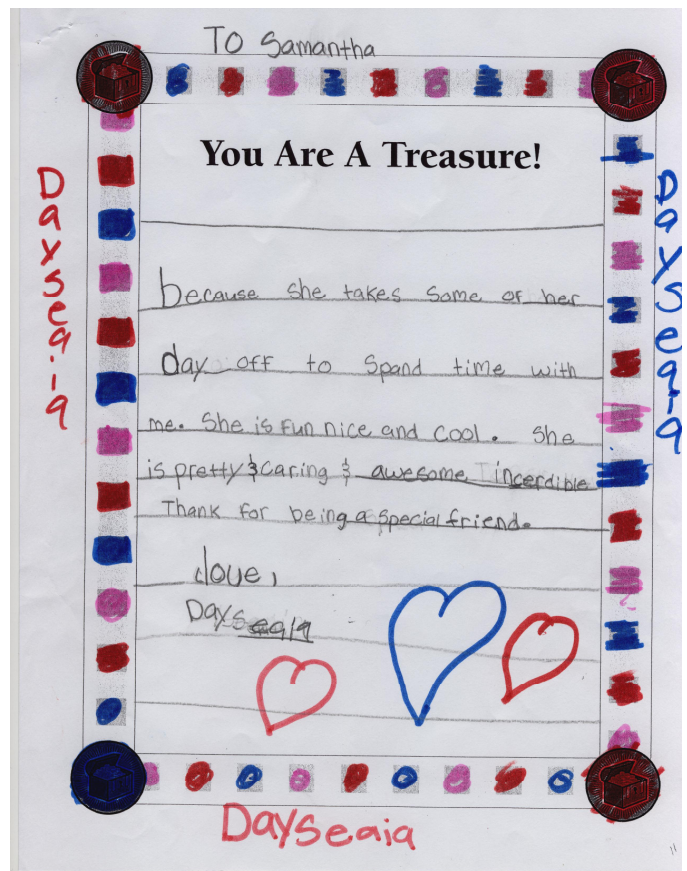 To Samantha
You Are A Treasure!
because she takes some of her
day off to spand time with
me. She is Fun nice and cool. She
is pretty & caring & awesome incerdible
Thank for being a special friend.
love,
Dayseaia
Dayseaia
Dayseaia
Dayseaia